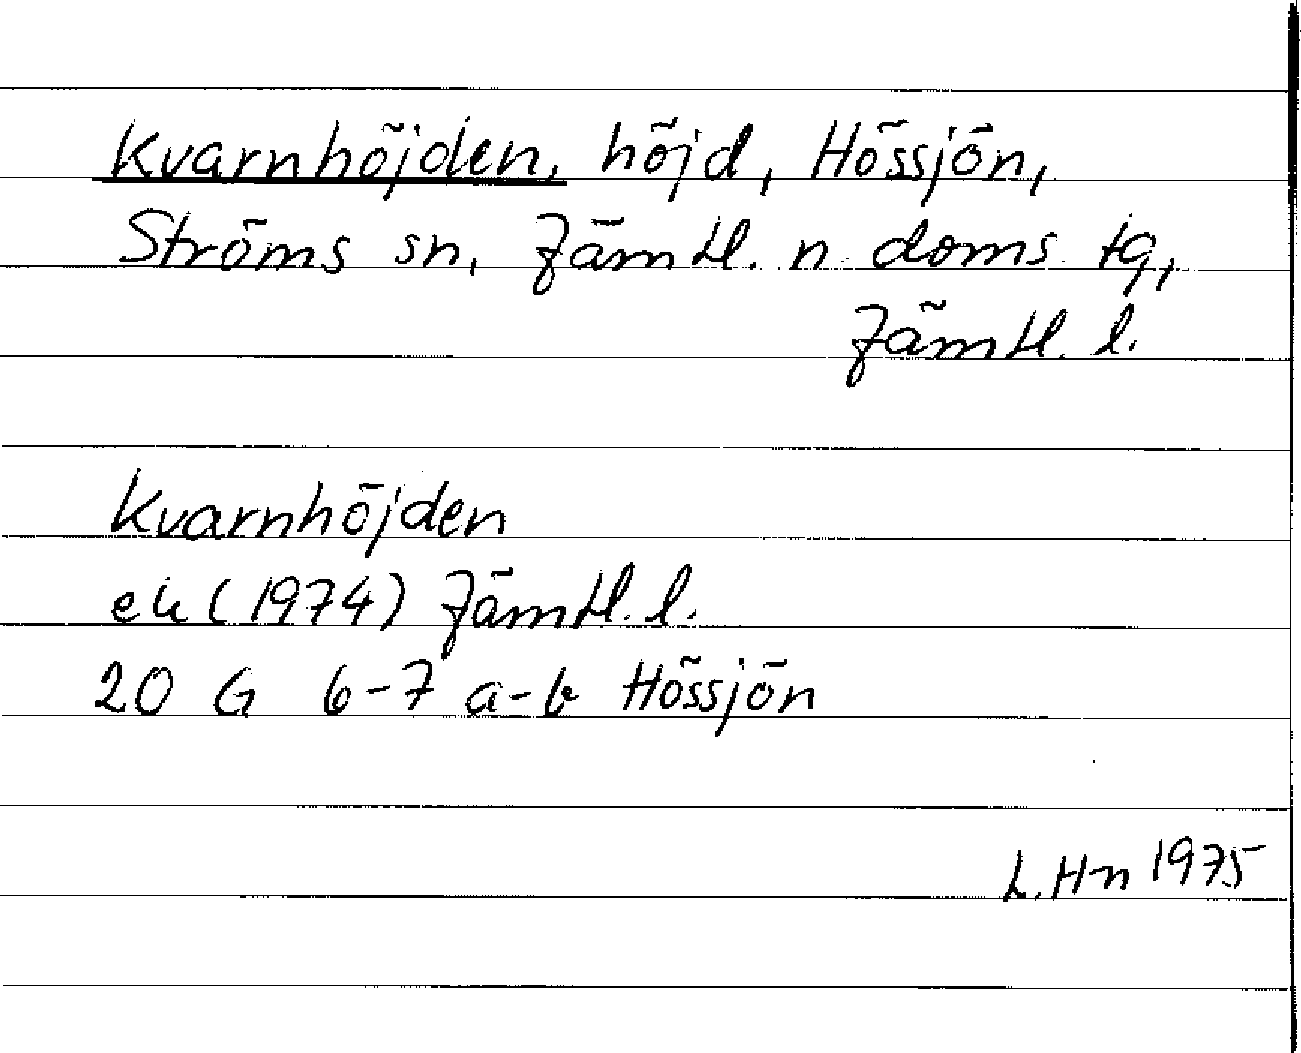 Kvarnhöjden, höjd, Hössjön,
Ströms sn, Jämtl. n doms tg,
Jämtl. l.
Kvarnhöjden
ek (1974) Jämtl. l.
20 G 6-7 a-b Hössjön
L. Hn 1975